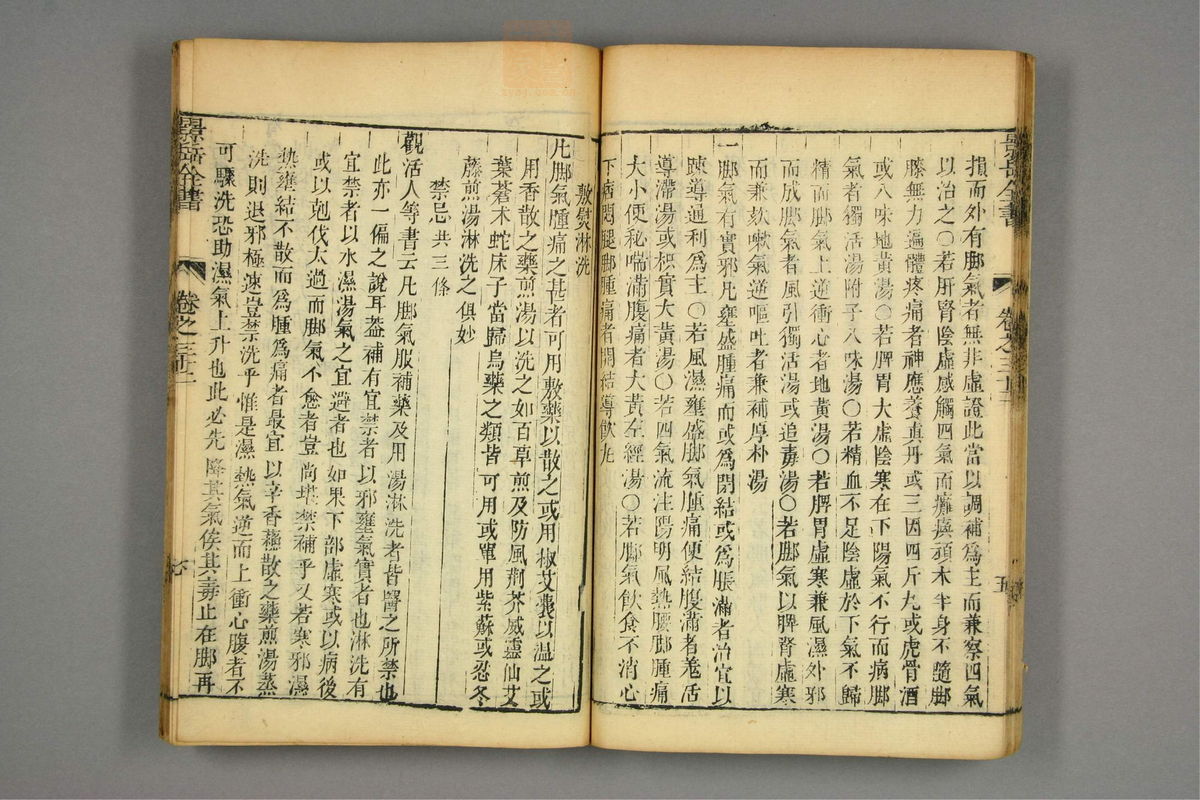 景岳全書
卷之三十二
五
損而外有腳氣者無非虛證此當以調補為主而兼察四氣
以治之○若肝腎陰虛感觸四氣而癱瘓頑木半身不隨腳
膝無力遍體疼痛者神應養真丹或三因四斤丸或虎骨酒
或八味地黃湯○若脾胃大虛陰寒在下陽氣不行而病腳
氣者獨活湯附子八味湯○若精血不足陰虛於下氣不歸
精而腳氣上逆衝心者地黃湯○若脾胃虛寒兼風濕外邪
而成腳氣者風引獨活湯或追毒湯○若腳氣以脾腎虛寒
而兼欬嗽氣逆嘔吐者兼補厚朴湯
一腳氣有實邪凡壅盛腫痛而或為閉結或為脹滿者治宜以
踈導通利為主○若風濕壅盛腳氣腫痛便結腹滿者羗活
導滯湯或枳實大黃湯○若四氣流注陽明風熱腰腳腫痛
大小便秘喘滿腹痛者大黃左經湯○若腳氣飲食不消心
下痞悶腿腳腫痛者開結導飲丸
敷熨淋洗
凡腳氣腫痛之甚者可用敷藥以散之或用椒艾囊以溫之或
用香散之藥煎湯以洗之如百草煎及防風荊芥威靈仙艾
葉蒼术蛇床子當歸烏藥之類皆可用或單用紫蘇或忍冬
藤煎湯淋洗之俱妙
禁忌共三條
觀活人等書云凡腳氣服補藥及用湯淋洗者皆醫之所禁也
此亦一偏之說耳葢補有宜禁者以邪壅氣實者也淋洗有
宜禁者以水濕湯氣之宜避者也如果下部虛寒或以病後
或以剋伐太過而腳氣不愈者豈尚堪禁補乎又若寒邪濕
熱壅結不散而為腫為痛者最宜以辛香疎散之藥煎湯蒸
洗則退邪極速豈禁洗乎惟是濕熱氣逆而上衝心腹者不
可驟洗恐助濕氣上升也此必先降其氣俟其毒止在腳再
景岳全書
卷之三十二